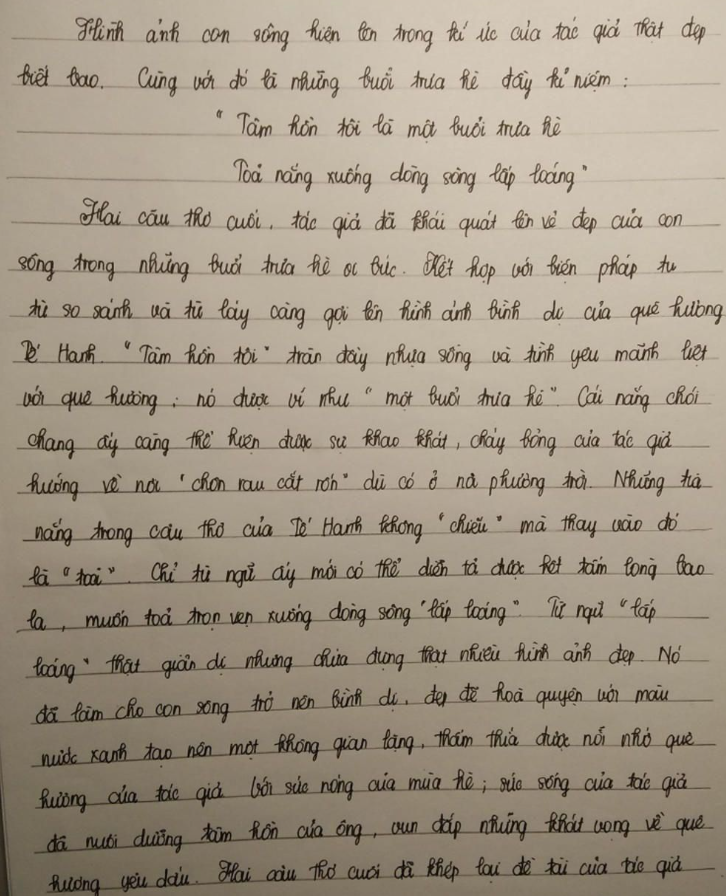 Hình ảnh con sông hiện lên trong kí ức của tác giả thật đẹp
biết bao. Cùng với đó là những buổi trưa hè đầy kỉ niệm :
" Tâm hồn tôi là một buổi trưa hè
Toả nắng xuống dòng sông lấp loáng "
Hai câu thơ cuối, tác giả đã khái quát lên vẻ đẹp của con
sông trong những buổi trưa hè oi bức. Kết hợp với biện pháp tu
từ so sánh và từ láy càng gợi lên hình ảnh bình dị của quê hương
Tế Hanh. "Tâm hồn tôi" tràn đầy nhựa sống và tình yêu mãnh liệt
với quê hương ; nó được ví như " một buổi trưa hè". Cái nắng chói
chang ấy càng thể hiện được sự khao khát, cháy bỏng của tác giả
hướng về nơi "chôn rau cắt rốn" dù có ở nơi phương trời. Nhưng tia
nắng trong câu thơ của Tế Hanh không "chiếu" mà thay vào đó
là "toả". Chỉ từ ngữ ấy mới có thể diễn tả được hết tấm lòng bao
la, muốn toả trọn vẹn xuống dòng sông "lấp loáng". Từ ngữ "lấp
loáng" thật giản dị nhưng chứa đựng thật nhiều hình ảnh đẹp. Nó
đã làm cho con sông trở nên bình dị, đẹp đẽ hoà quyện với màu
nước xanh tạo nên một không gian lặng, thấm thía được nỗi nhớ quê
hương của tác giả. Với sức nóng của mùa hè ; sức sống của tác giả
đã nuôi dưỡng tâm hồn của ông, vun đắp những khát vọng về quê
hương yêu dấu. Hai câu thơ cuối đã khép lại đề tài của tác giả